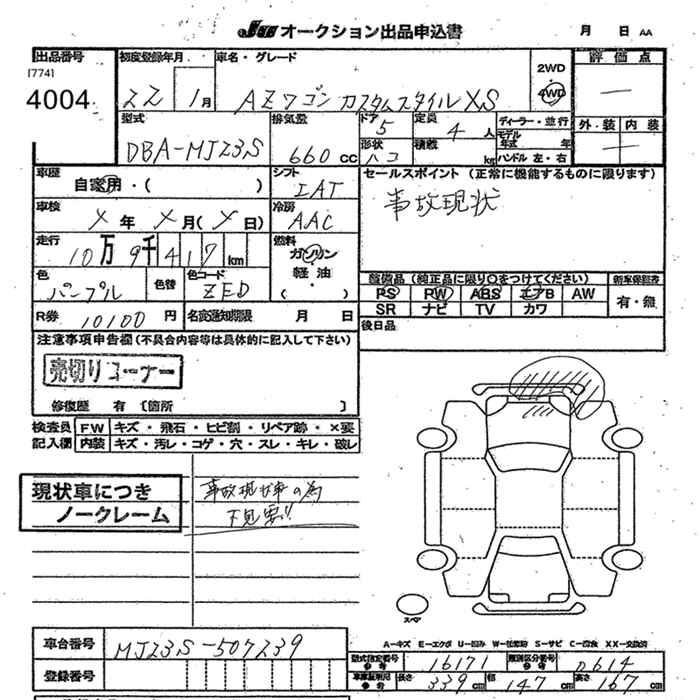 JU オークション出品申込書 月 日 AA
出品番号 初度登録年月 車名・グレード 2WD 評価点
[774]
4004 22 1月 AZワゴン カスタムスタイルXS 4WD —
型式 排気量 ドア 5 定員 4人 ディーラー・並行 外装 内装
DBA-MJ23S 660cc 形状 ハコ 積載 kg モデル年式 年 —
ハンドル 左・右
車歴 自家用・( ) シフト IAT セールスポイント (正常に機能するものに限ります)
車検 X年 X月(X日) 冷房 AAC 事故現状
走行 10万9千417km 燃料 ガソリン
軽油・
( )
色 パープル 色替 色コード ZED 装備品 (純正品に限り○をつけてください) 新車保証書
PS PW ABS エアB AW 有・無
SR ナビ TV カワ
R券 10100円 名変通知期限 月 日 後日品
注意事項申告欄(不具合内容等は具体的に記入して下さい)
売切りコーナー
修復歴 有 [箇所 ]
検査員 FW キズ・飛石・ヒビ割・リペア跡・×要
記入欄 内装 キズ・汚レ・コゲ・穴・スレ・キレ・破レ
現状車につき
ノークレーム
事故現状車の為
下見要!!
スペア
A=キズ E=エクボ U=凹み W=板金跡 S=サビ C=腐食 XX=交換済
車台番号 MJ23S-507239
型式指定番号 参考 16171 類別区分番号 参考 0614
登録番号
車庫証明用 参考 長さ 339cm 幅 147cm 高さ 167cm